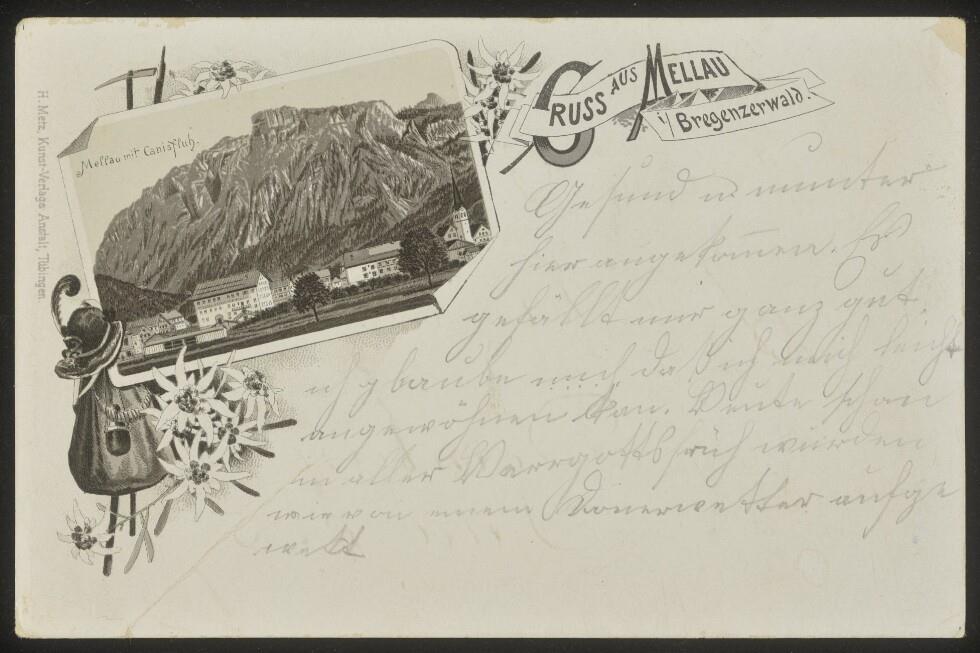 GRUSS AUS MELLAU
i/ Bregenzerwald.
Mellau mit Canisfluh.
H. Metz, Kunst-Verlags Anstalt, Tübingen.
Gesund u munter
hier angekomen. Es
gefällt mir ganz gut
ich glaube auch daß ich mich leicht
angewöhnen kan. Heute schon
in aller Herrgottsfrüh wurden
wir von einem Donerwetter aufge
wekt